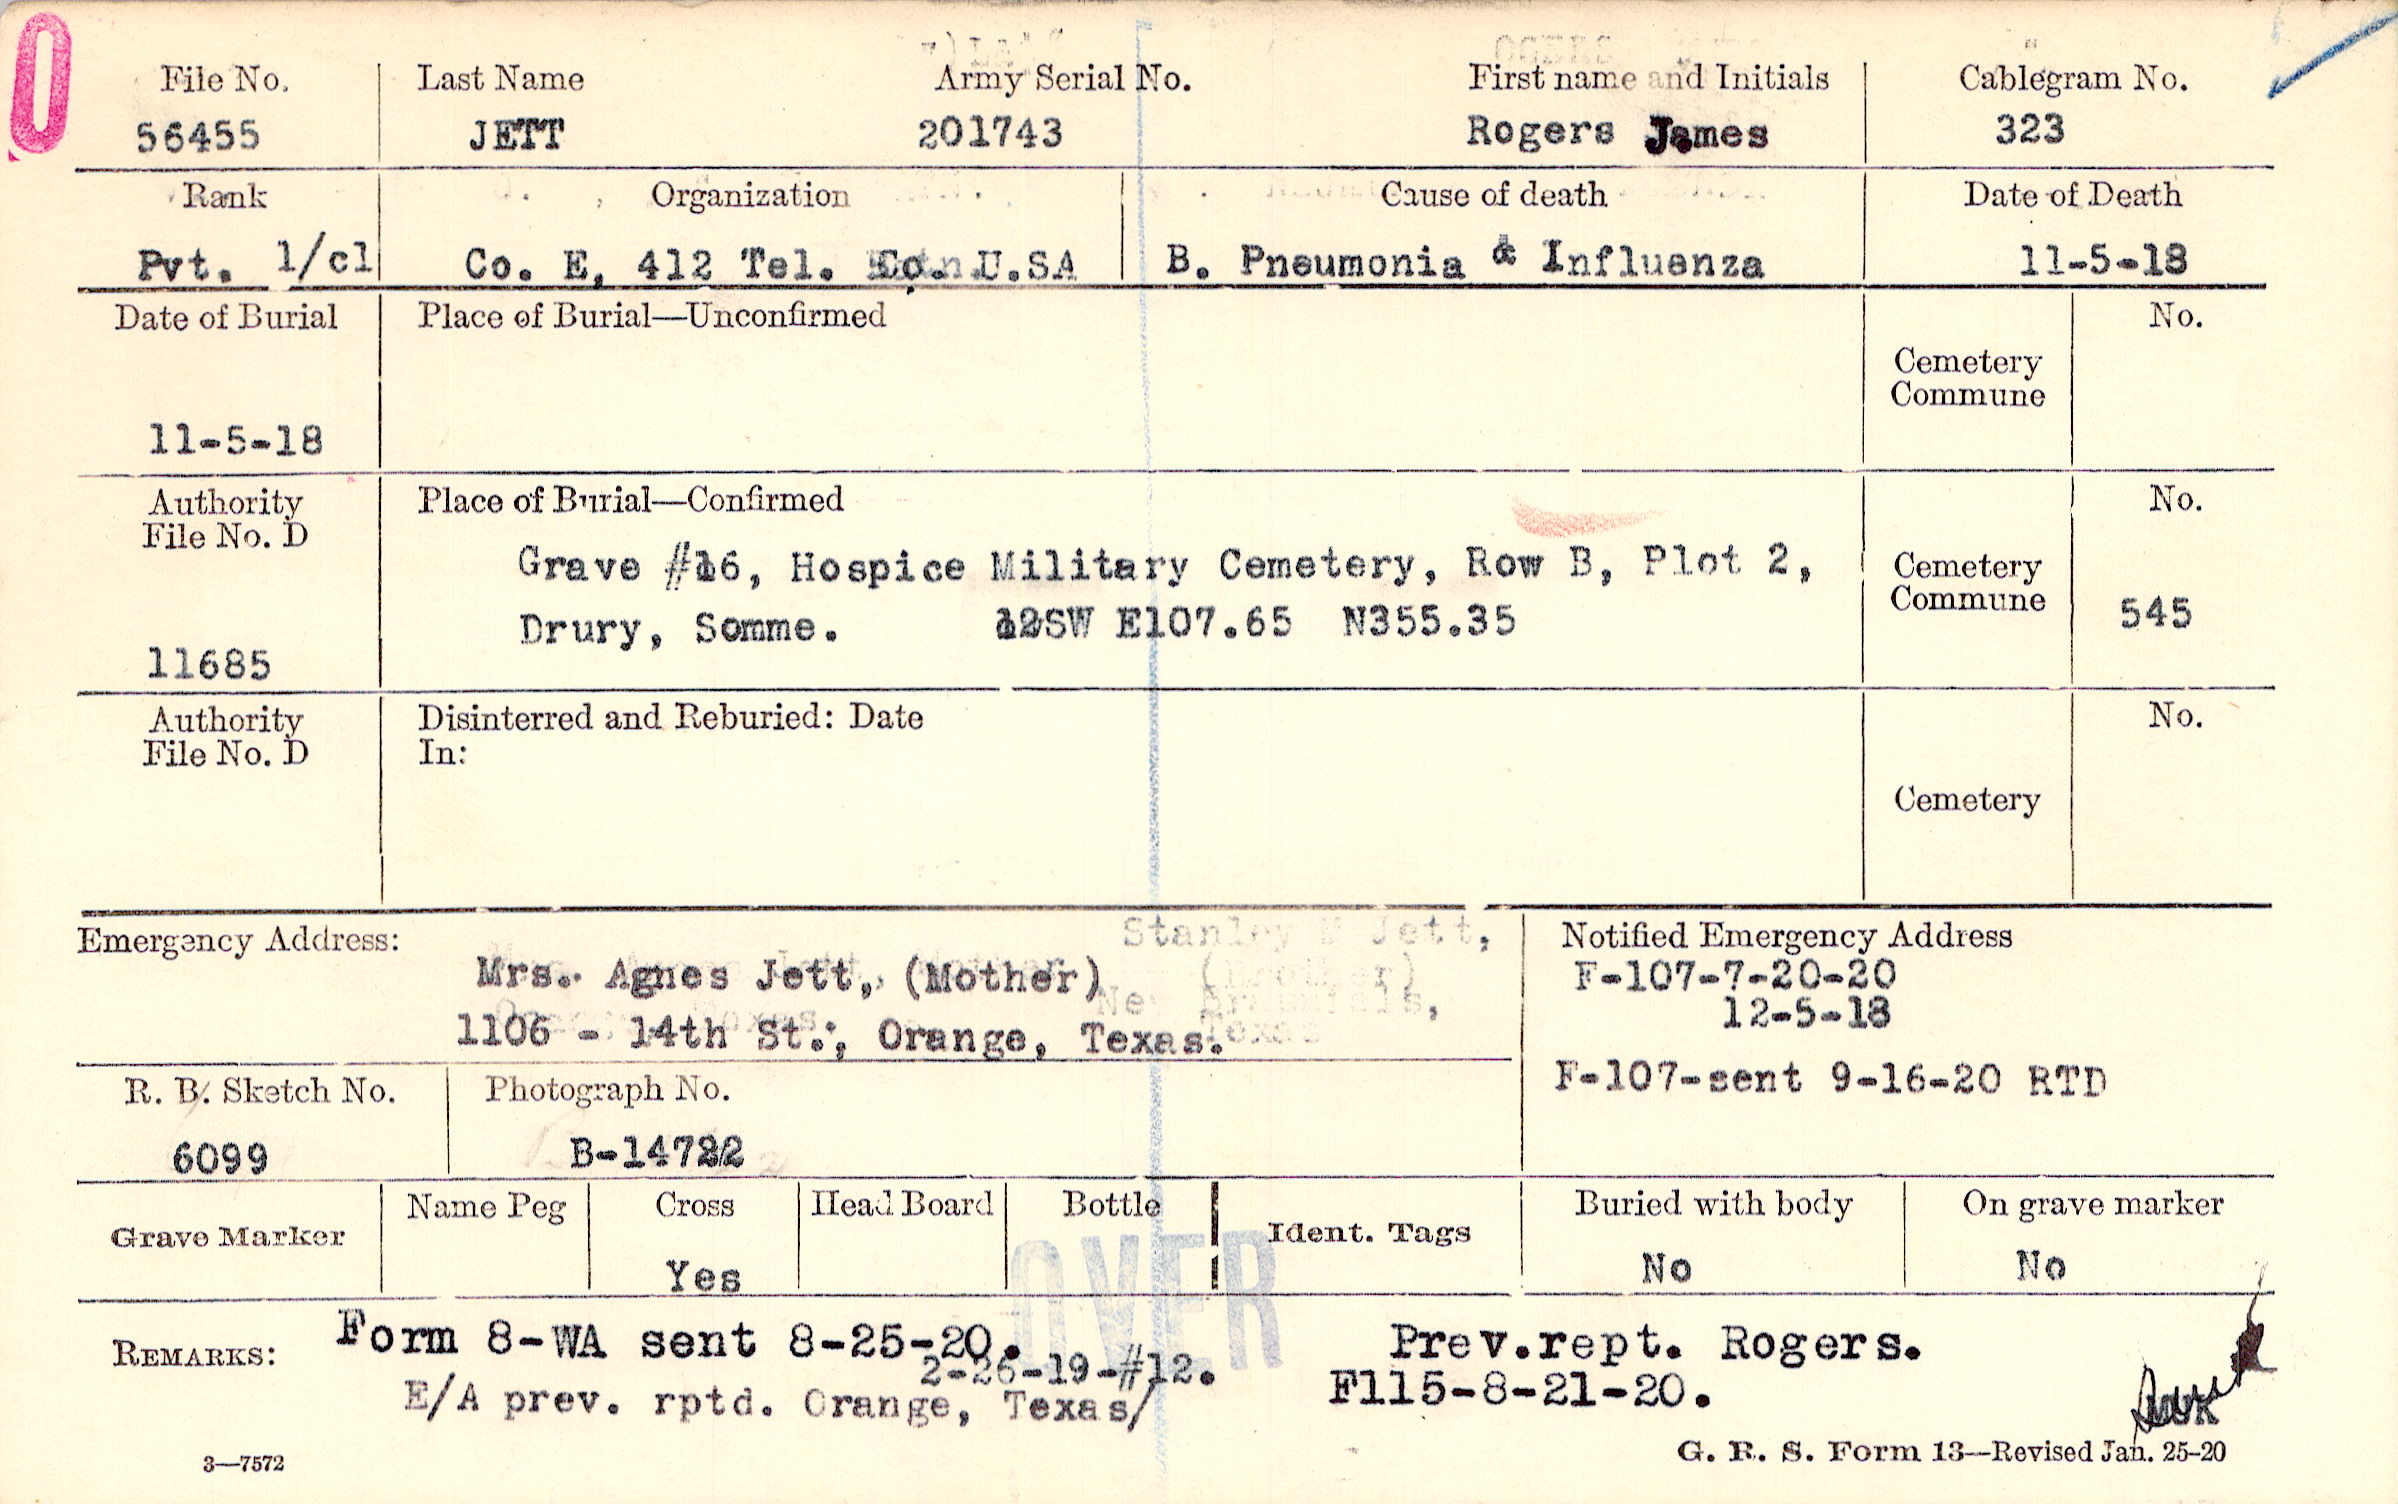 0
File No. Last Name Army Serial No. First name and Initials Cablegram No.
56455 JETT 201743 Rogers James 323
Rank Organization Cause of death Date of Death
Pvt. 1/cl Co. E, 412 Tel. U.SA B. Pneumonia & Influenza 11-5-18
Date of Burial Place of Burial—Unconfirmed No.
Cemetery
Commune
11-5-18
Authority Place of Burial—Confirmed No.
File No. D
Grave #16, Hospice Military Cemetery, Row B, Plot 2, Cemetery
Commune 545
Drury, Somme. 12SW E107.65 N355.35
11685
Authority Disinterred and Reburied: Date No.
File No. D In:
Cemetery
Stanley M Jett,
Emergency Address: Notified Emergency Address
Mrs. Agnes Jett, (Mother) F-107-7-20-20
12-5-18
1106 - 14th St.; Orange, Texas. Texas
R. B. Sketch No. Photograph No. F-107-sent 9-16-20 RTD
6099 B-14722
Grave Marker Name Peg Cross Head Board Bottle Ident. Tags Buried with body On grave marker
Yes No No
OVER
REMARKS: Form 8-WA sent 8-25-20. Prev.rept. Rogers.
2-26-19-#12.
E/A prev. rptd. Orange, Texas/ F115-8-21-20.
3—7572 G. R. S. Form 13—Revised Jan. 25-20